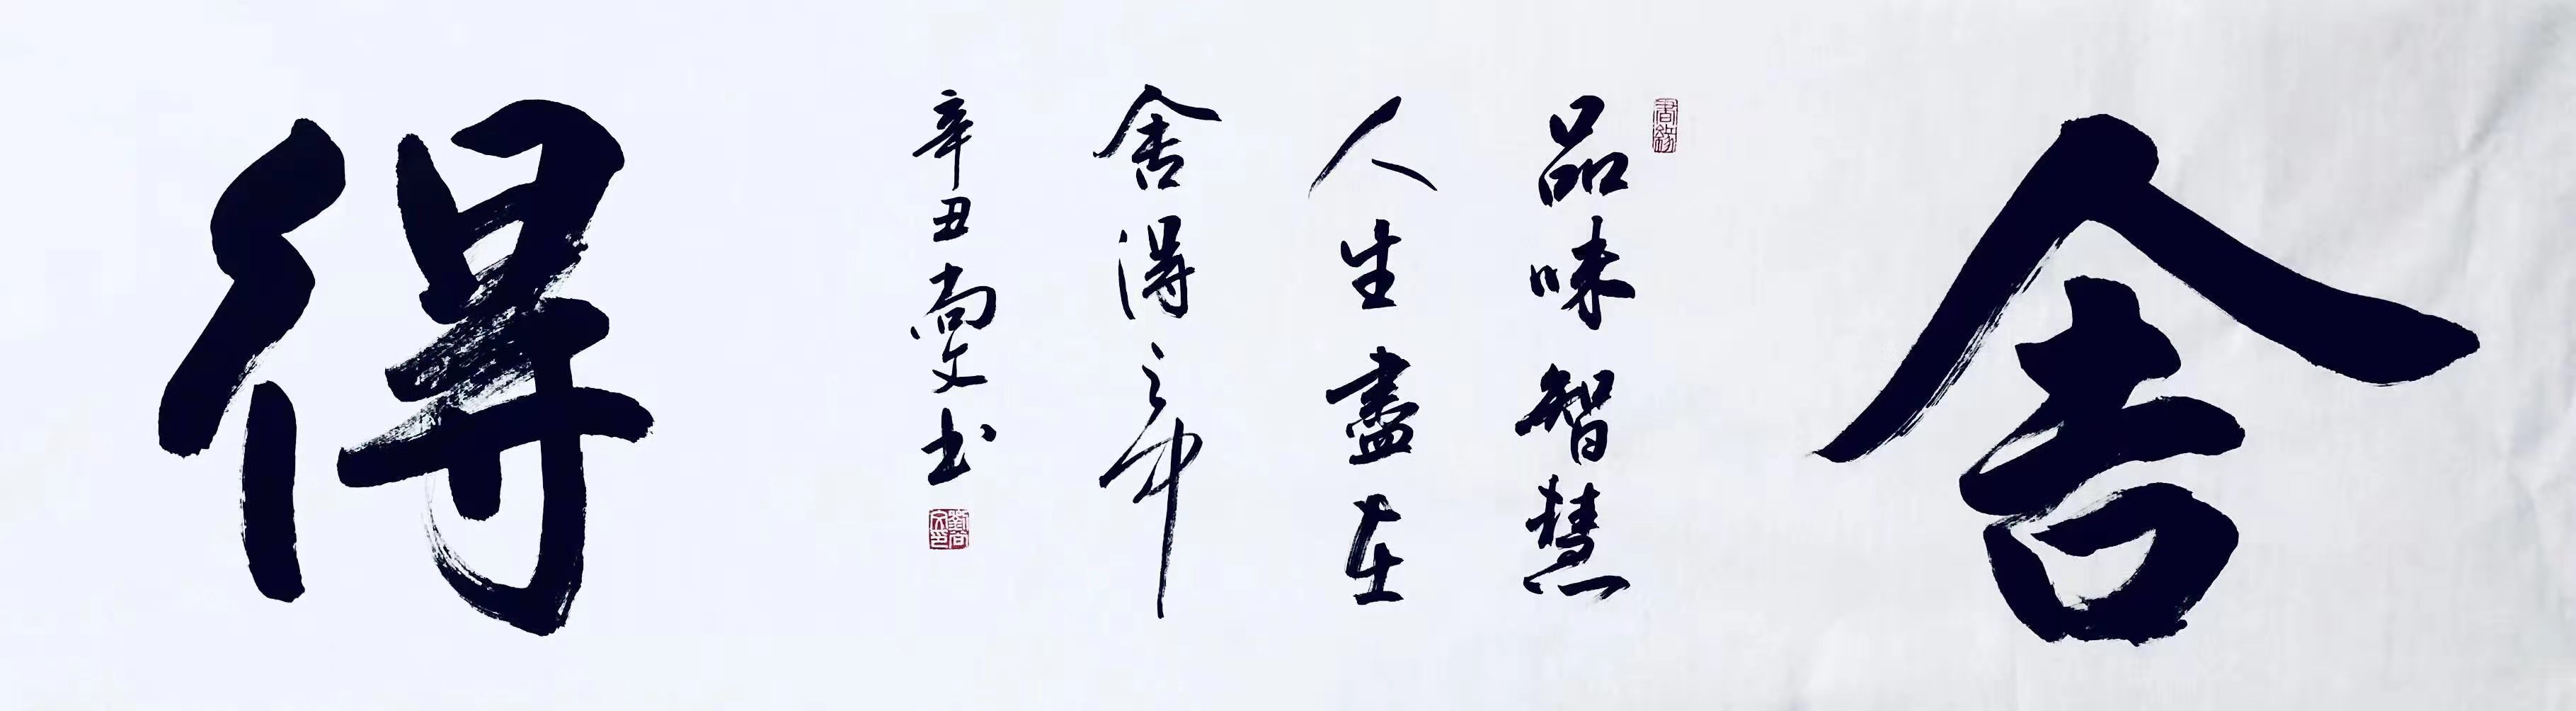 舍
書緣
品味智慧
人生盡在
舍得之中
辛丑尚文书
得